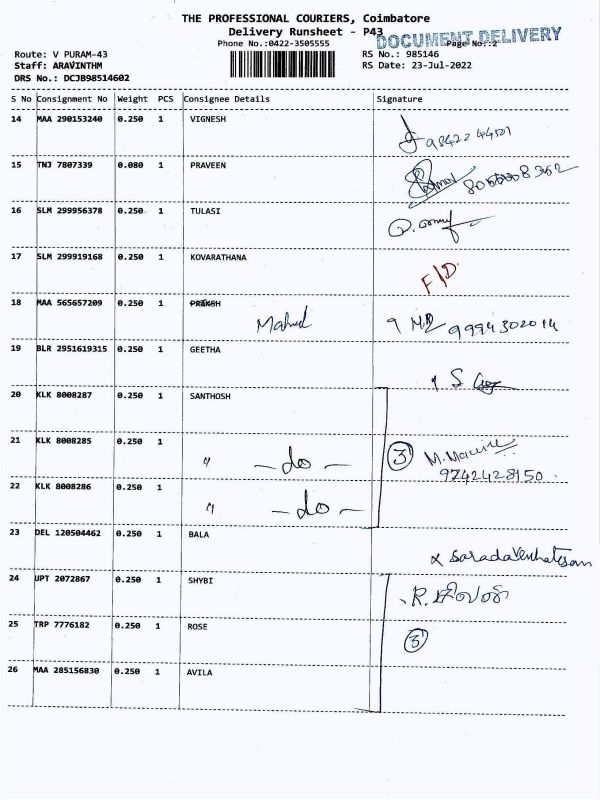 THE PROFESSIONAL COURIERS, Coimbatore
Delivery Runsheet - P43
DOCUMENT DELIVERY
Phone No.:0422-3505555 Page No.:2
Route: V PURAM-43 RS No.: 985146
Staff: ARAVINTHM RS Date: 23-Jul-2022
DRS No.: DCJB98514602
S No Consignment No Weight PCS Consignee Details Signature
14 MAA 290153240 0.250 1 VIGNESH
15 TNJ 7807339 0.080 1 PRAVEEN
16 SLM 299956378 0.250 1 TULASI
17 SLM 299919168 0.250 1 KOVARATHANA F/D.
18 MAA 565657209 0.250 1 PRAKSH
9994302014
19 BLR 2951619315 0.250 1 GEETHA
20 KLK 8008287 0.250 1 SANTHOSH
21 KLK 8008285 0.250 1 " - do - 3
9742428150.
22 KLK 8008286 0.250 1 " - do -
23 DEL 120504462 0.250 1 BALA
x SaradaVenkatesan
24 UPT 2072867 0.250 1 SHYBI
25 TRP 7776182 0.250 1 ROSE 3
26 MAA 285156830 0.250 1 AVILA